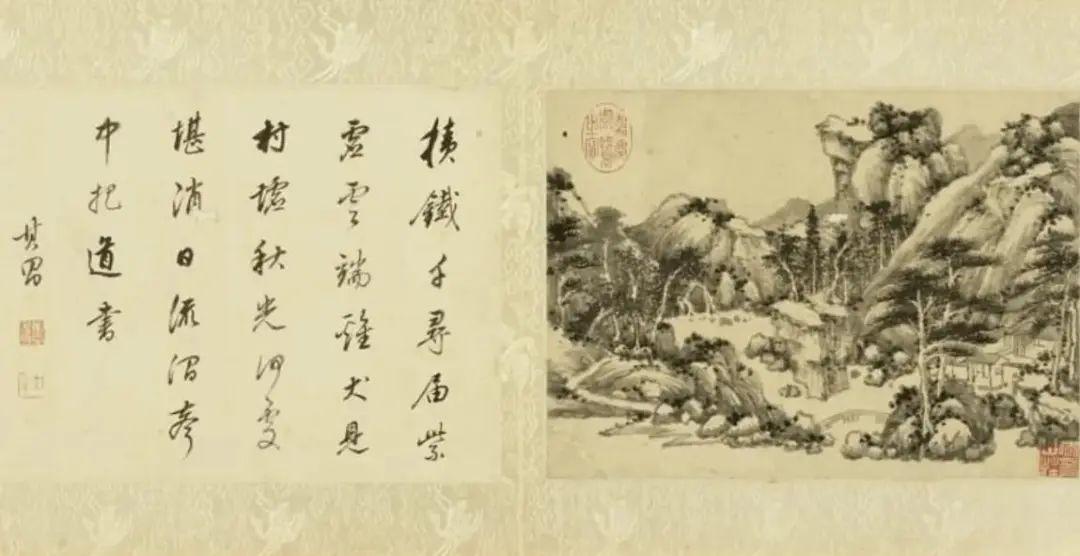 積鐵千尋屆紫
虛雲端雞犬見
村墟秋光何處
堪消日流澗聲
中把道書
其昌